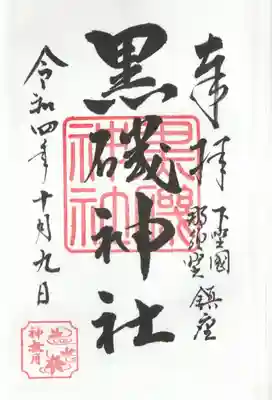 奉拝
下野國
那須郡 鎮座
黒磯神社
黒磯神社
令和四年十月九日
神無月